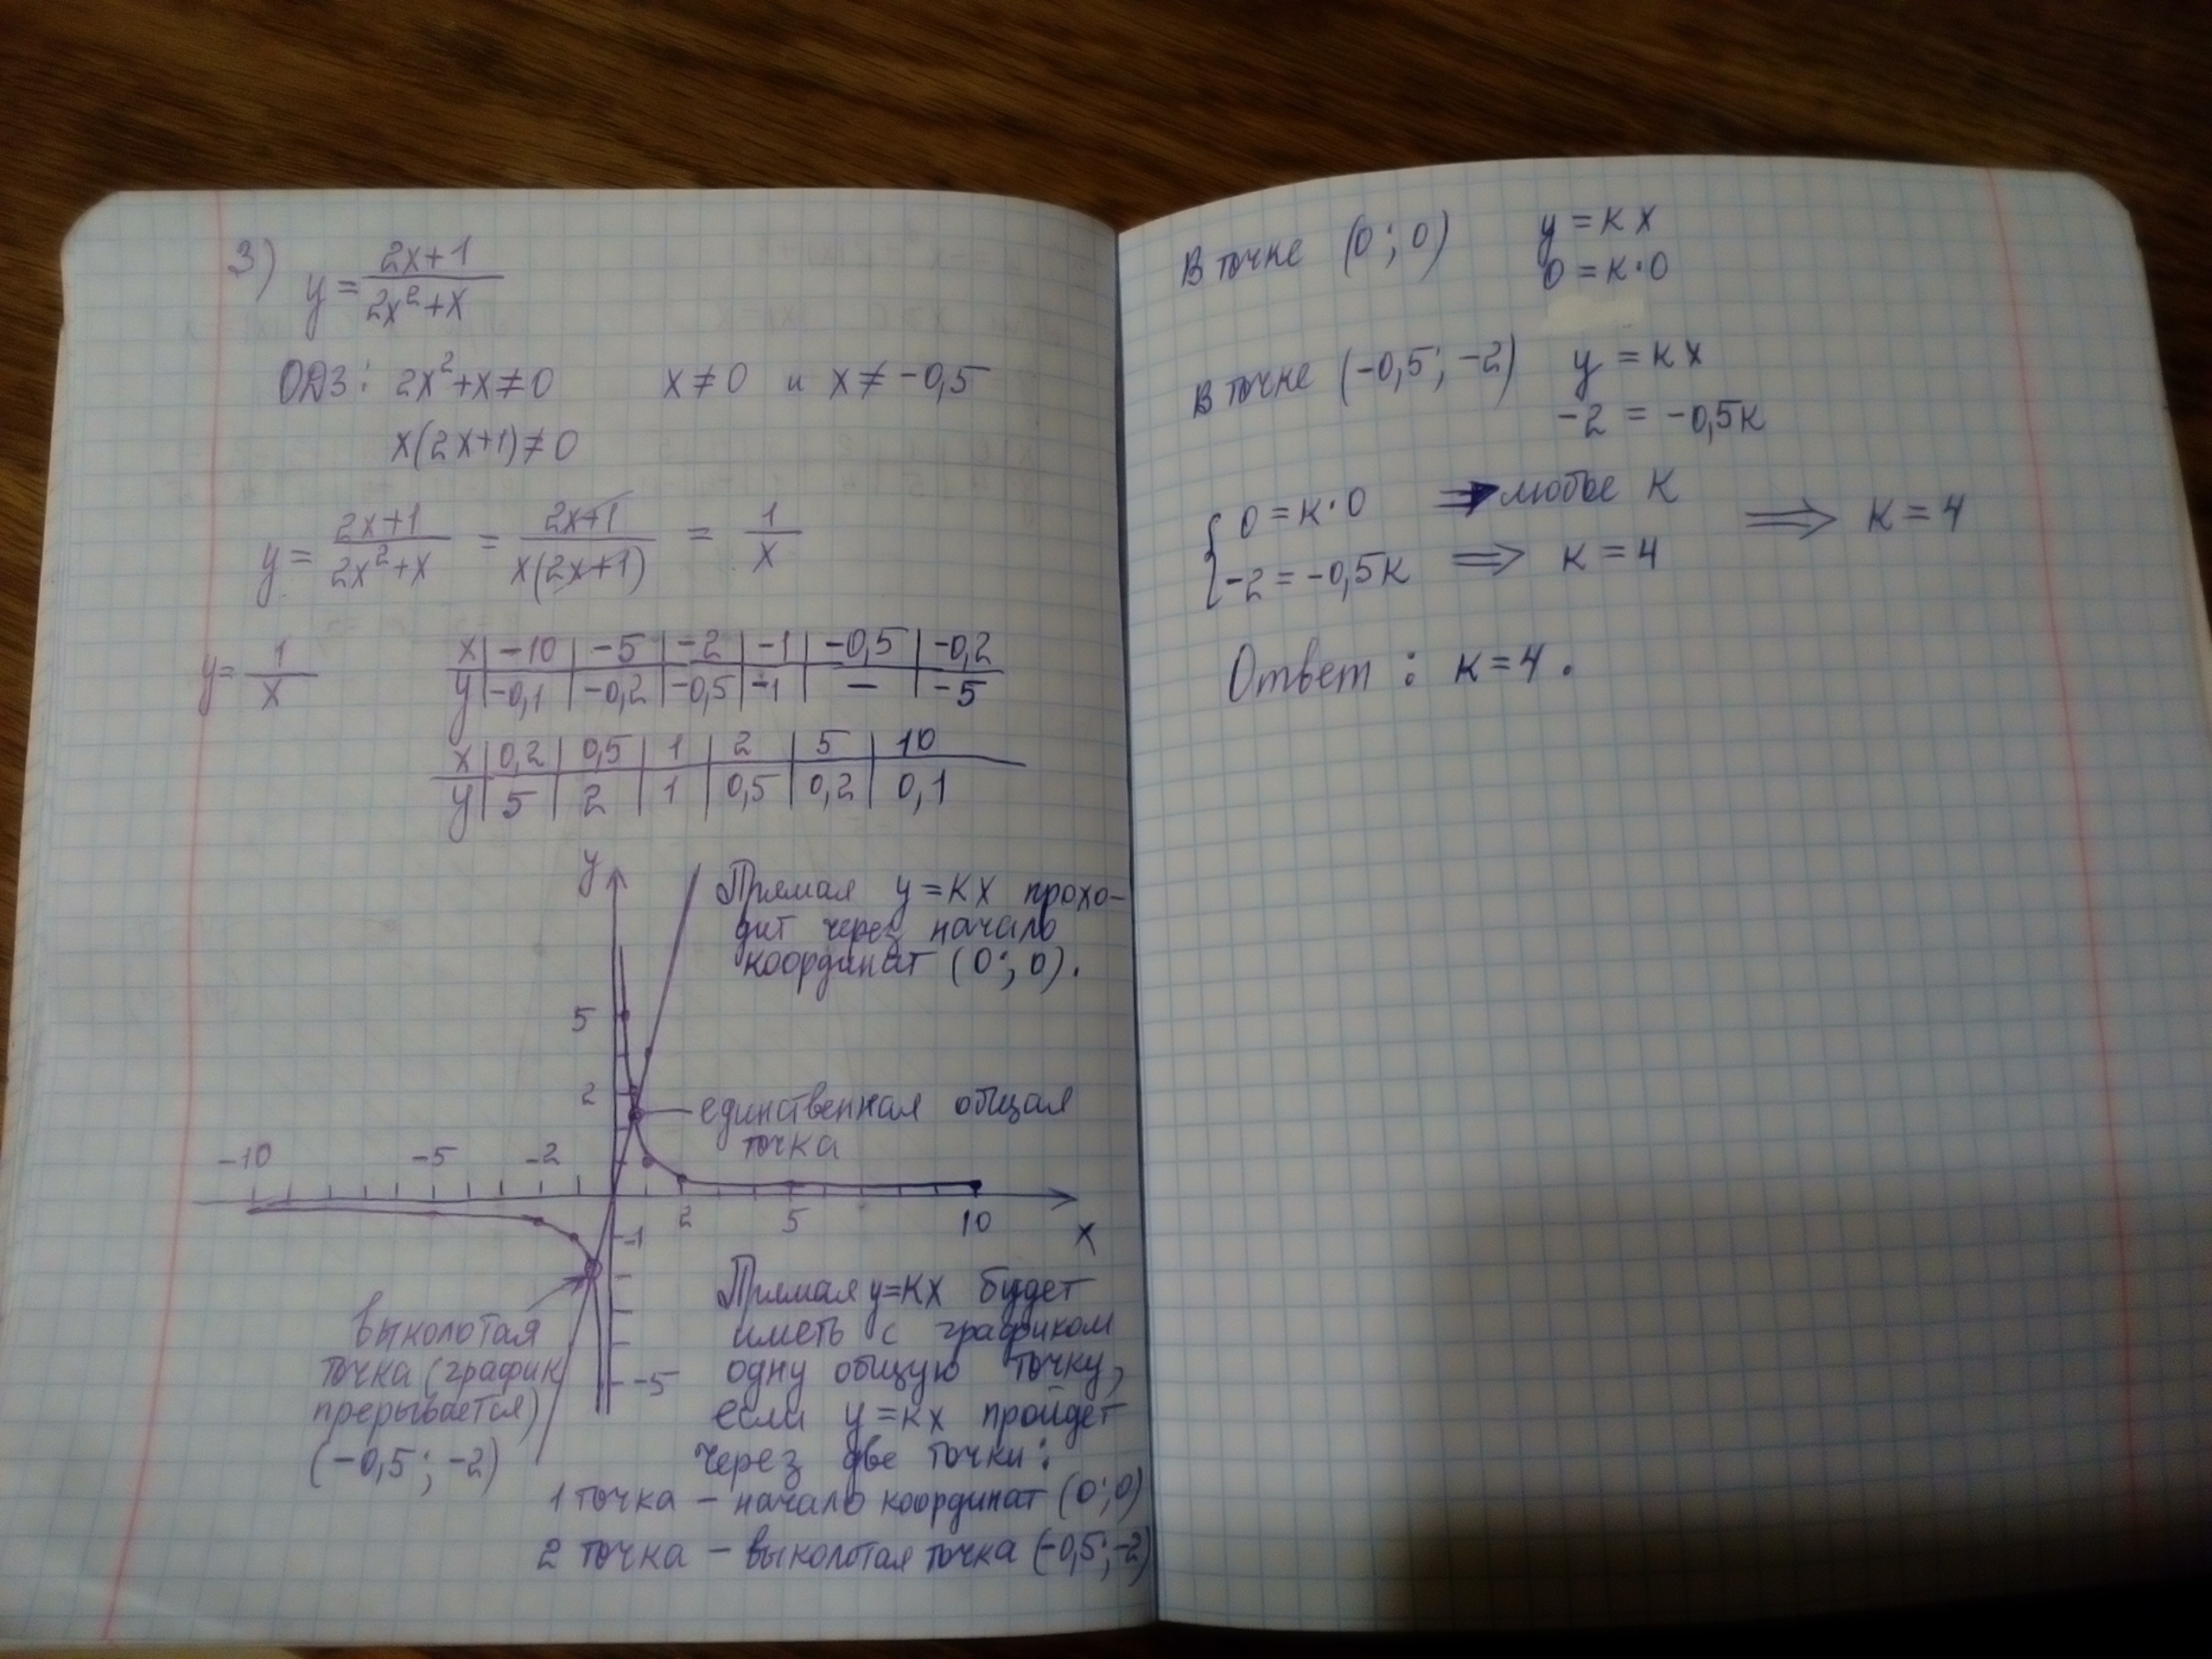 3) y = (2x+1)/(2x²+x)
ОДЗ: 2x²+x≠0 x≠0 и x≠-0,5
x(2x+1)≠0
y = (2x+1)/(2x²+x) = (2x+1)/(x(2x+1)) = 1/x
y = 1/x
x | -10 | -5 | -2 | -1 | -0,5 | -0,2
y | -0,1 | -0,2 | -0,5 | -1 | — | -5
x | 0,2 | 0,5 | 1 | 2 | 5 | 10
y | 5 | 2 | 1 | 0,5 | 0,2 | 0,1
y
Прямая y=кx прохо-
дит через начало
координат (0; 0).
5
2
единственная общая
точка
-10 -5 -2
2 5 10 x
-1
-5
выколотая
точка (график
прерывается)
(-0,5; -2)
Прямая y=кx будет
иметь с графиком
одну общую точку,
если y=кx пройдет
через две точки:
1 точка – начало координат (0; 0)
2 точка – выколотая точка (-0,5; -2)
В точке (0; 0) y = кx
0 = к·0
В точке (-0,5; -2) y = кx
-2 = -0,5к
{ 0 = к·0 ⇒ любое к
{ -2 = -0,5к ⇒ к = 4 ⇒ к = 4
Ответ: к=4.